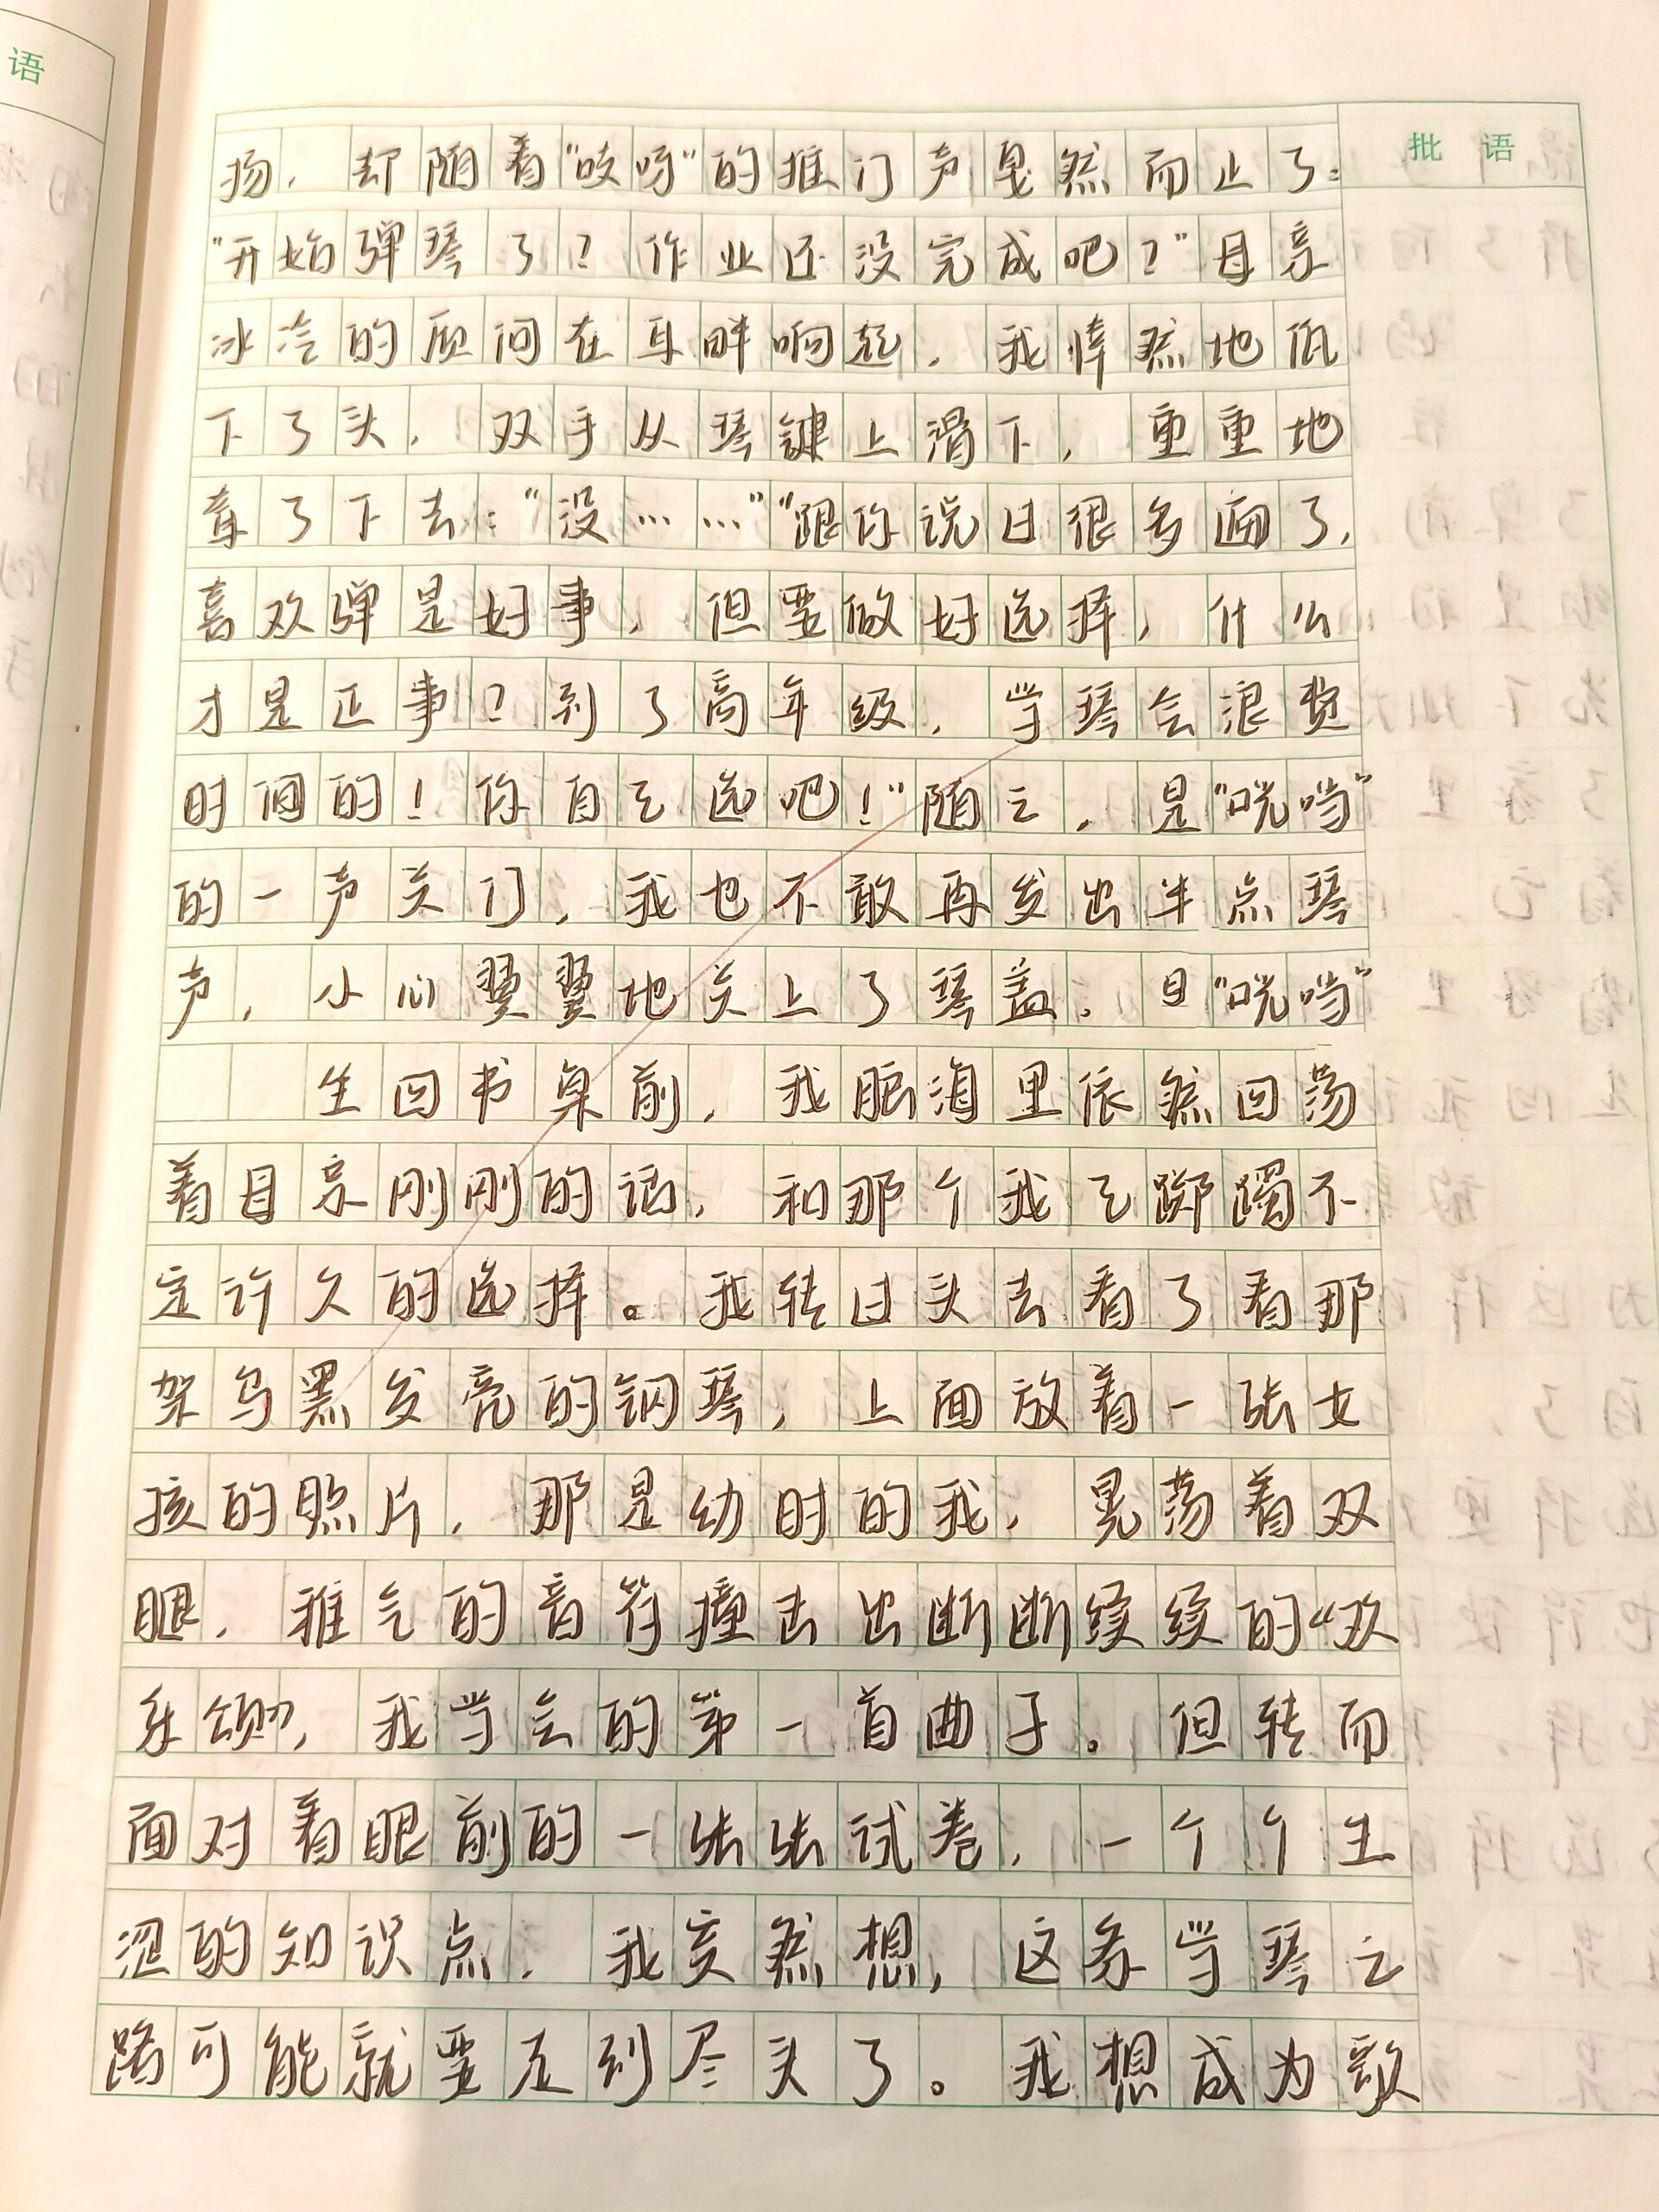 语
批 语
扬，却随着“吱呀”的推门声戛然而止了：
“开始弹琴了？作业还没完成吧？”母亲
冰冷的质问在耳畔响起，我悻然地低
下了头，双手从琴键上滑下，重重地
垂了下去：“没……”“跟你说过很多遍了，
喜欢弹是好事，但要做好选择，什么
才是正事？到了高年级，学琴会浪费
时间的！你自己选吧！”随之，是“咣当”
的一声关门，我也不敢再发出半点琴
声，小心翼翼地关上了琴盖。
坐回书桌前，我脑海里依然回荡
着母亲刚刚的话，和那个我已踯躅不
定许久的选择。我转过头去看了看那
架乌黑发亮的钢琴，上面放着一张女
孩的照片，那是幼时的我，晃荡着双
腿，稚气的音符撞击出断断续续的《欢
乐颂》，我学会的第一首曲子。但转而
面对着眼前的一张张试卷，一个个生
涩的知识点，我突然想，这条学琴之
路可能就要走到尽头了。我想成为歌